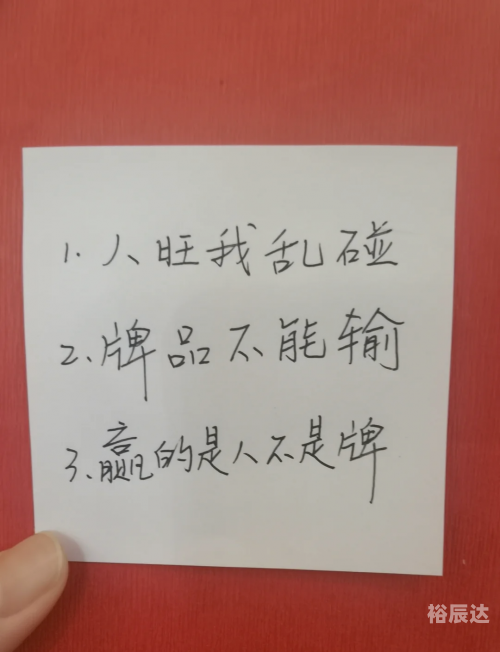 1. 人旺我乱碰
2、牌品不能输
3、赢的是人不是牌
裕辰达